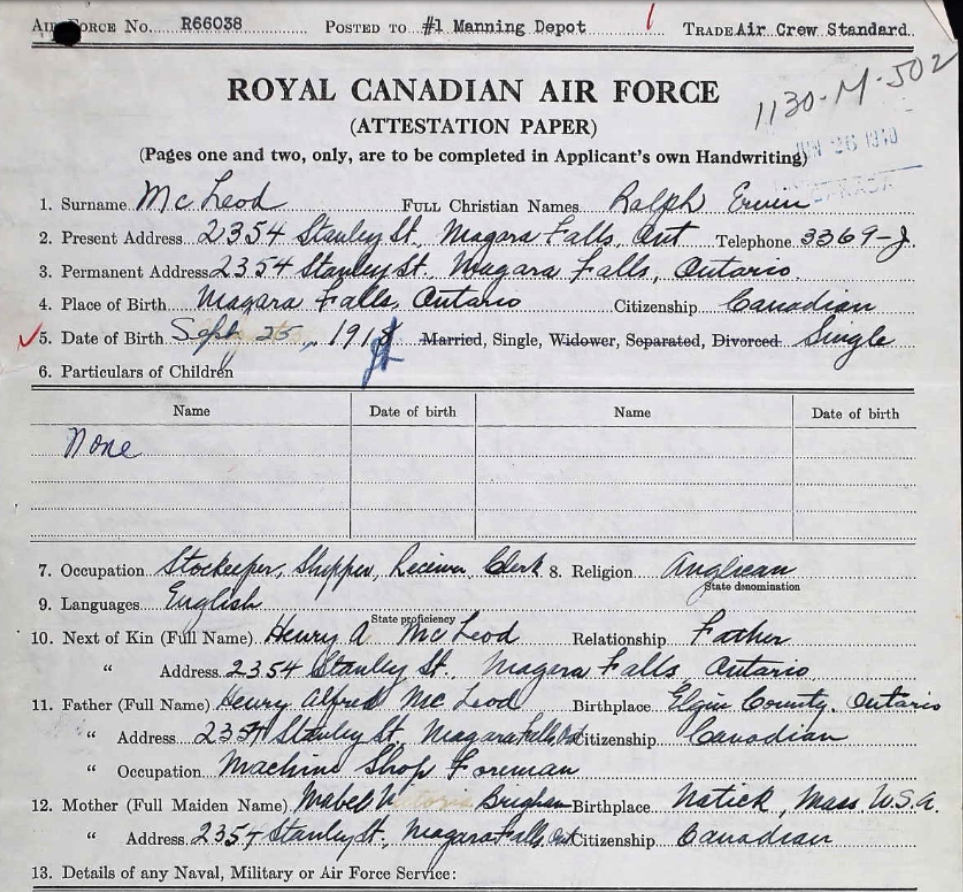 Air Force No. R66038 Posted to #1 Manning Depot Trade Air Crew Standard
1130-M-502
ROYAL CANADIAN AIR FORCE
(ATTESTATION PAPER)
(Pages one and two, only, are to be completed in Applicant's own Handwriting)
1. Surname Mc Leod Full Christian Names Ralph Erwin
2. Present Address 2354 Stanley St., Niagara Falls, Ont Telephone 3369-J.
3. Permanent Address 2354 Stanley St. Niagara Falls, Ontario.
4. Place of Birth Niagara Falls, Ontario Citizenship Canadian
5. Date of Birth Sept 25, 1918 Married, Single, Widower, Separated, Divorced Single
6. Particulars of Children
Name Date of birth Name Date of birth
None
7. Occupation Stockeeper, Shipper, Receiver, Clerk 8. Religion Anglican
State denomination
9. Languages English
State proficiency
10. Next of Kin (Full Name) Henry A Mc Leod Relationship Father
" Address 2354 Stanley St., Niagara Falls, Ontario
11. Father (Full Name) Henry Alfred Mc Leod Birthplace Elgin County, Ontario
" Address 2354 Stanley St, Niagara Falls, Ont Citizenship Canadian
" Occupation Machine Shop Foreman
12. Mother (Full Maiden Name) Mabel Brigham Birthplace Natick, Mass U.S.A.
" Address 2354 Stanley St., Niagara Falls, Ont Citizenship Canadian
13. Details of any Naval, Military or Air Force Service: